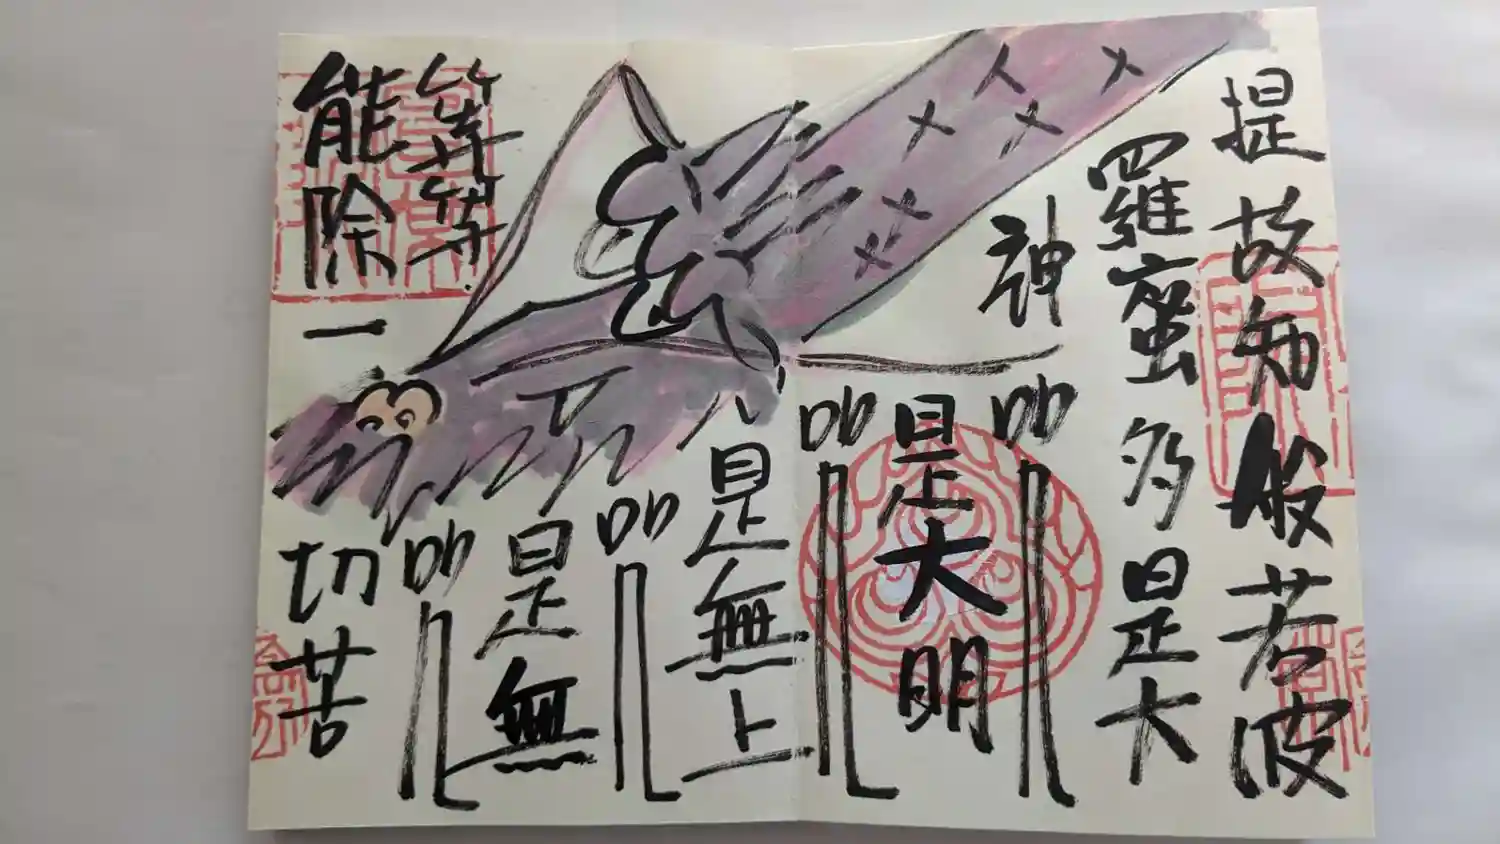 提故知般若波
羅蜜多是大
神呪
是大明
呪
是無上
呪
是無
等等
呪
能除一切苦